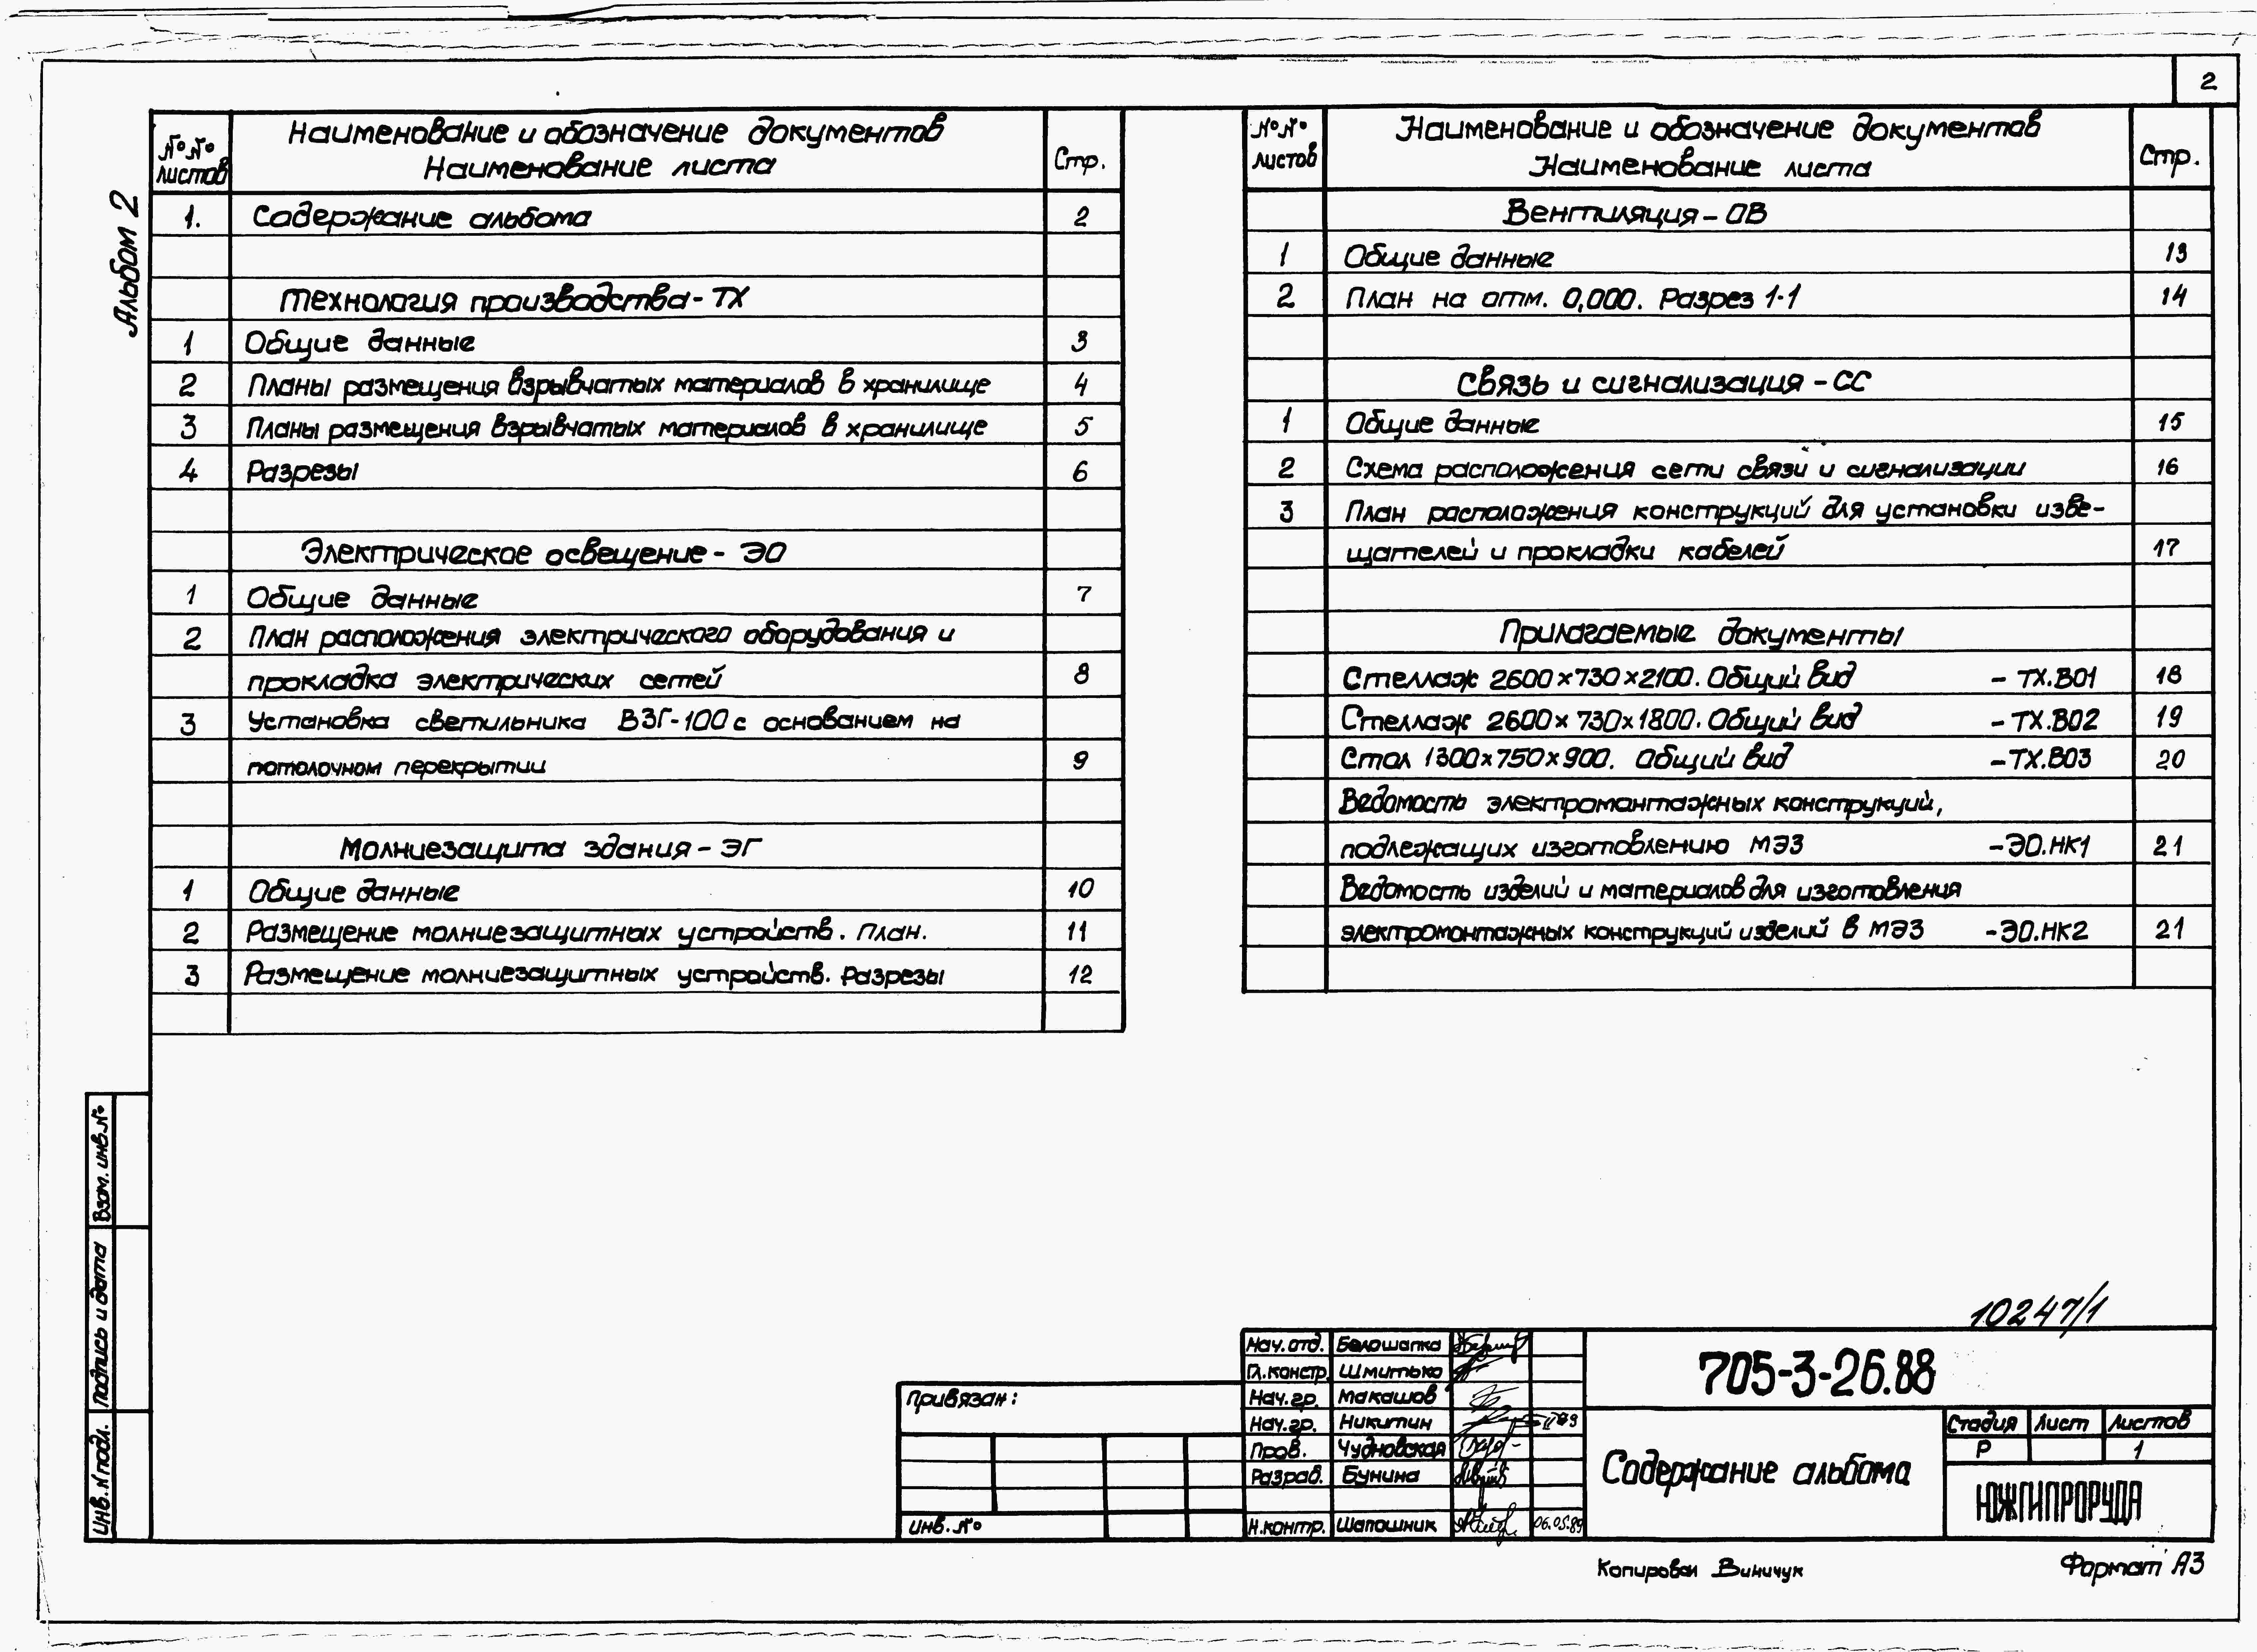 2
Альбом 2
№№ листов
Наименование и обозначение документов
Наименование листа
Стр.
1. Содержание альбома 2
Технология производства - ТХ
1 Общие данные 3
2 Планы размещения взрывчатых материалов в хранилище 4
3 Планы размещения взрывчатых материалов в хранилище 5
4 Разрезы 6
Электрическое освещение - ЭО
1 Общие данные 7
2 План расположения электрического оборудования и
прокладка электрических сетей 8
3 Установка светильника ВЗГ-100 с основанием на
потолочном перекрытии 9
Молниезащита здания - ЭГ
1 Общие данные 10
2 Размещение молниезащитных устройств. План. 11
3 Размещение молниезащитных устройств. Разрезы 12
№№ листов
Наименование и обозначение документов
Наименование листа
Стр.
Вентиляция - ОВ
1 Общие данные 13
2 План на отм. 0,000. Разрез 1-1 14
Связь и сигнализация - СС
1 Общие данные 15
2 Схема расположения сети связи и сигнализации 16
3 План расположения конструкций для установки изве-
щателей и прокладки кабелей 17
Прилагаемые документы
Стеллаж 2600×730×2100. Общий вид - ТХ.В01 18
Стеллаж 2600×730×1800. Общий вид - ТХ.В02 19
Стол 1300×750×900. Общий вид - ТХ.В03 20
Ведомость электромонтажных конструкций,
подлежащих изготовлению МЭЗ - ЭО.НК1 21
Ведомость изделий и материалов для изготовления
электромонтажных конструкций изделий в МЭЗ - ЭО.НК2 21
Взам. инв. №
Подпись и дата
Инв. № подл.
10247/1
Привязан:
Инв. №
Нач. отд. Белошапка
Гл. констр. Шмитько
Нач. гр. Макашов
Нач. гр. Никитин
Пров. Чудновская
Разраб. Бунина
Н. контр. Шапошник 06.05.89
705-3-26.88
Содержание альбома
Стадия Лист Листов
Р 1
ЮЖГИПРОРУДА
Копировал Виничук
Формат А3